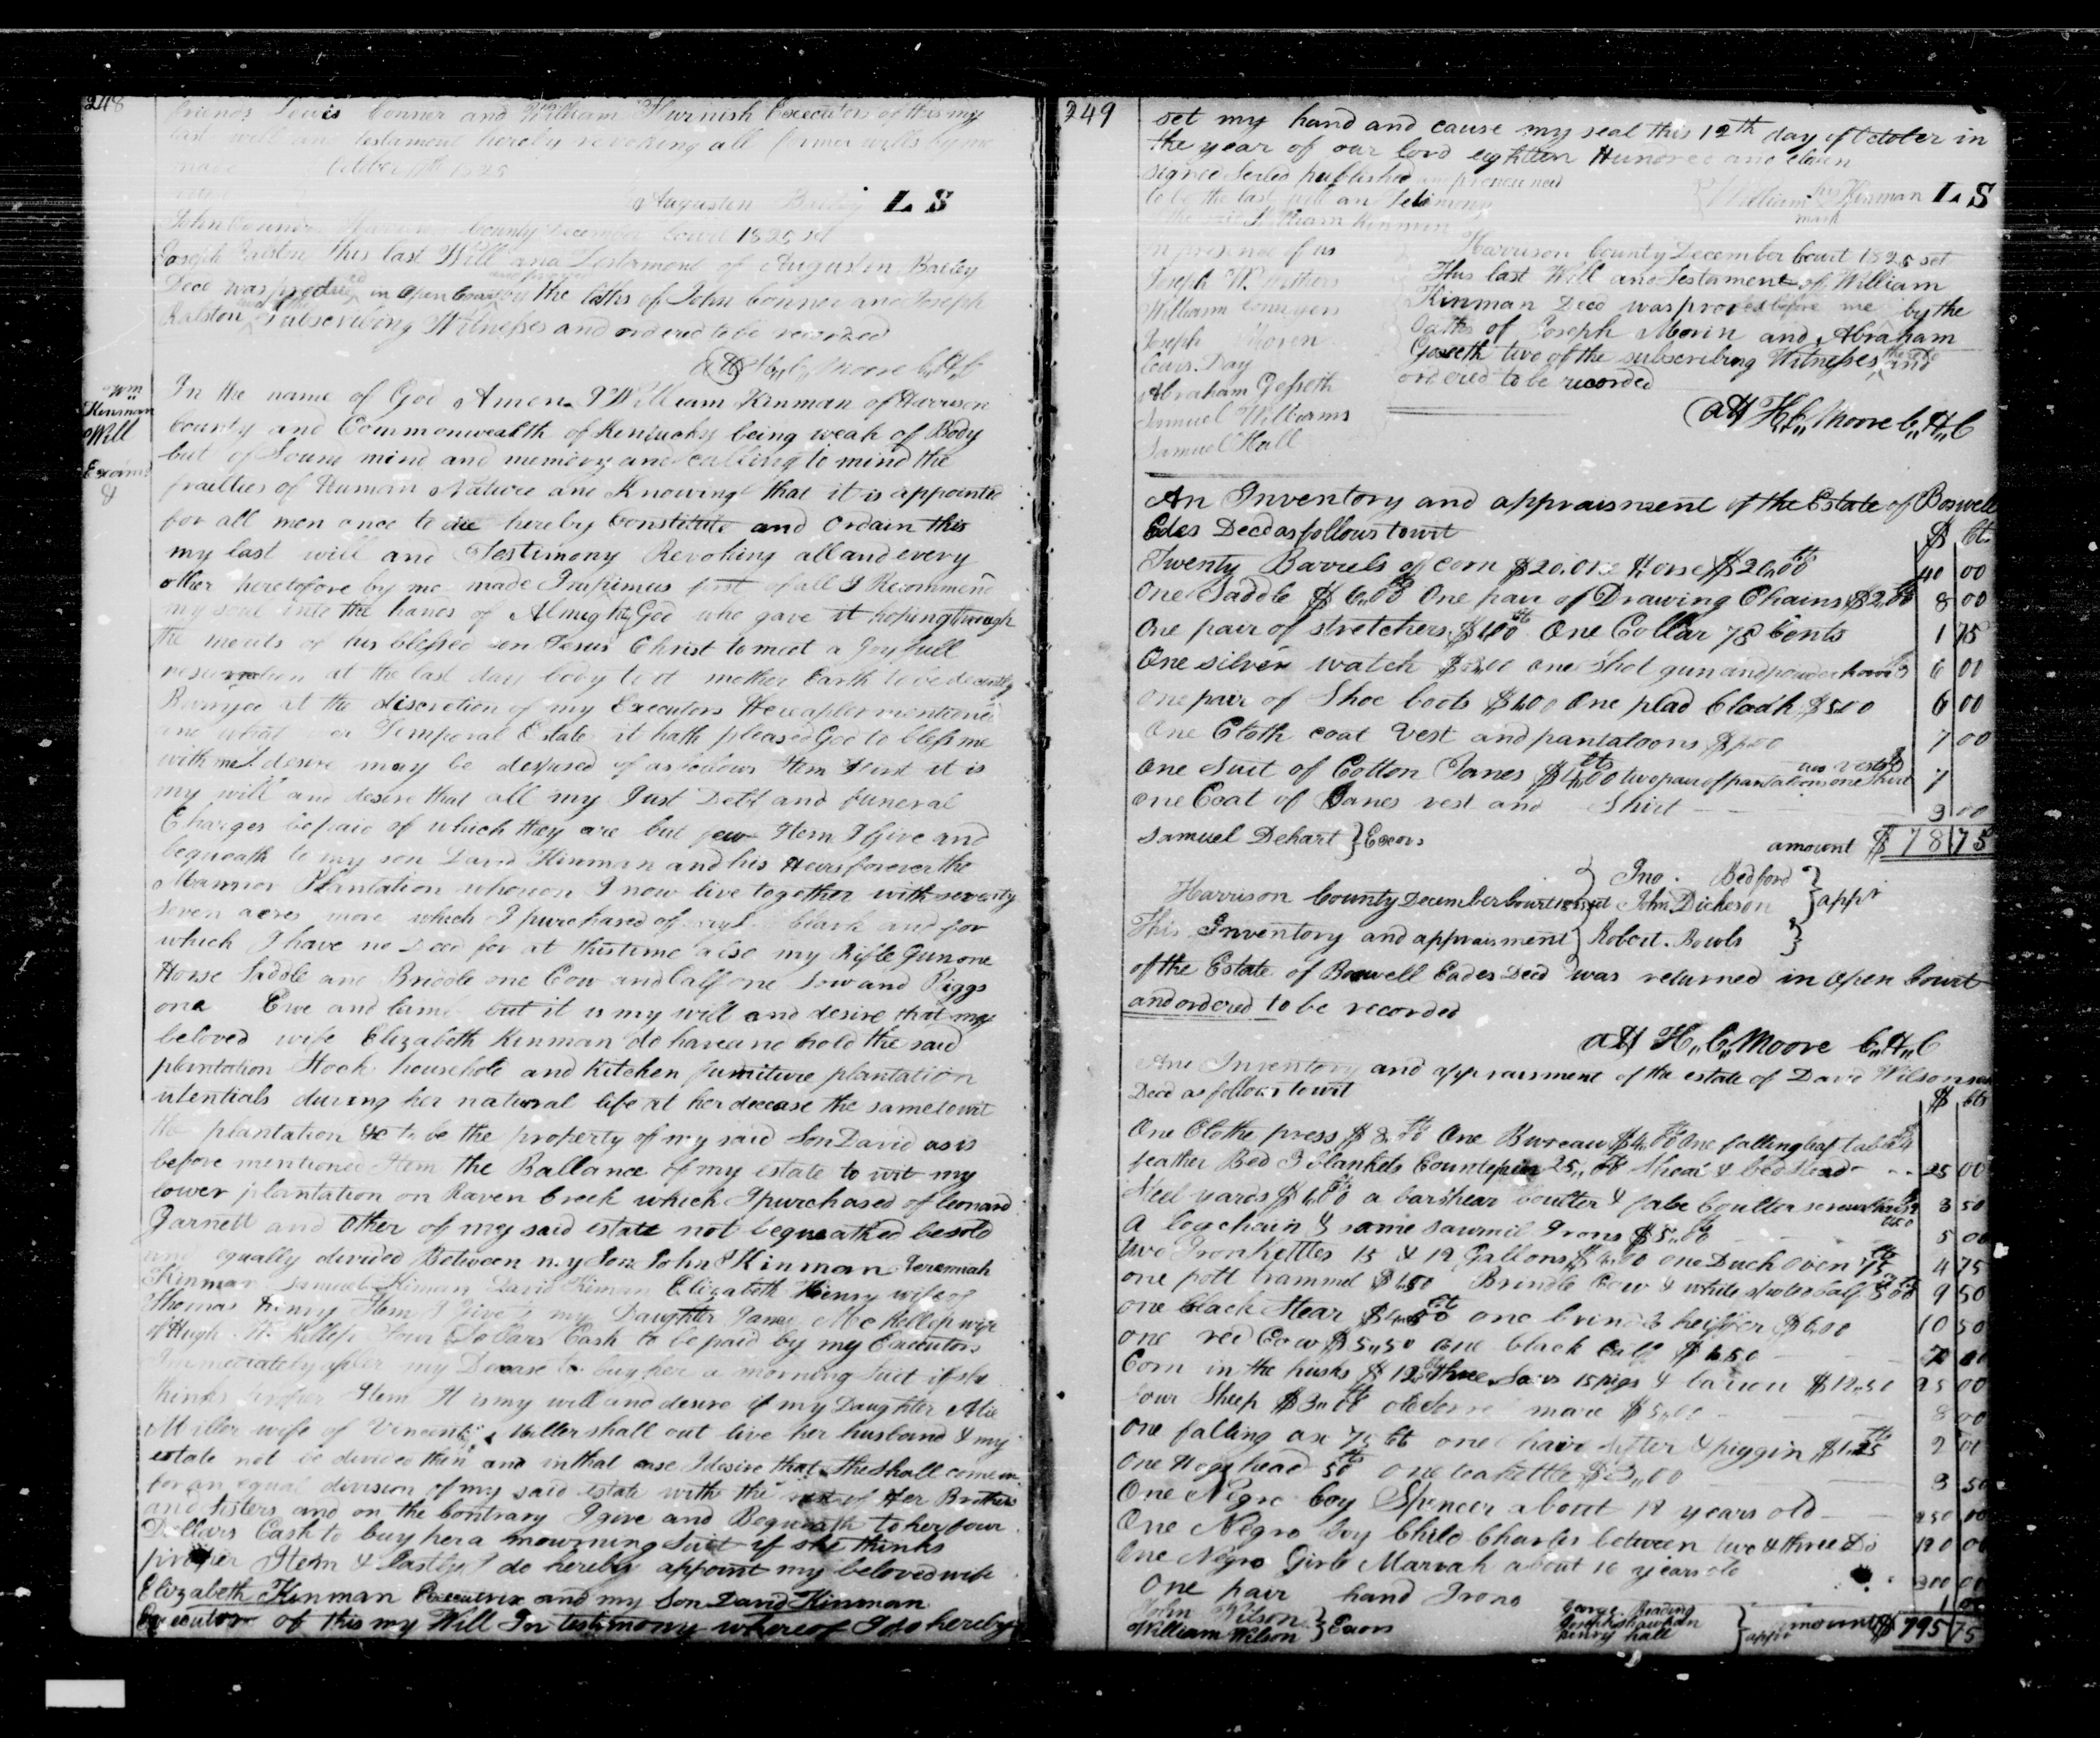 248
friends Lewis Conner and William Furnish Executors of this my
last will and testament hereby revoking all former wills by me
made October 11th 1825
Augusten Bailey L S
John Conner Harrison County December Court 1825 set
Joseph Ralston This last Will and Testament of Augusten Bailey
Decd was produced in Open Court and proven by the Oaths of John Conner and Joseph
Ralston subscribing Witnesses and ordered to be recorded
Att H,, C,, Moore C,, H,, C
Wm
Kinman
Will
Examd
In the name of God Amen I William Kinman of Harrison
County and Commonwealth of Kentucky being weak of Body
but of Sound mind and memory and calling to mind the
frailties of Human Nature and Knowing that it is appointed
for all men once to die hereby Constitute and Ordain this
my last will and Testimony Revoking all and every
other heretofore by me made Imprimus first of all I Recommend
my soul into the hands of Almighty God who gave it hoping through
the merits of his blessed son Jesus Christ to meet a Joyfull
resurrection at the last day body to it mother Earth to be decently
Burryed at the discretion of my Executors Hereafter mentioned
and what ever Temporal Estate it hath pleased God to bless me
with me I desire may be desposed of as follows Item First it is
my will and desire that all my Just Debt and funeral
Charges be paid of which they are but few Item I Give and
bequeath to my son David Kinman and his Heirs forever the
Mannor Plantation whereon I now live together with seventy
seven acres more which I purchased of Clark and for
which I have no Deed for at this time also my Rifle Gun one
Horse Saddle and Bridle one Cow and Calf one Sow and Piggs
one Ewe and lamb but it is my will and desire that my
beloved wife Elizabeth Kinman do have and hold the said
plantation Stock household and kitchen furniture plantation
utentials during her natural life at her decease the same to wit
the plantation &c to be the property of my said Son David as is
before mentioned Item the Ballance of my estate to wit my
lower plantation on Raven Creek which I purchased of Leonard
Garnett and other of my said estate not bequeathed be sold
and equally divided Between my Son John Kinman Jeremiah
Kinman Samuel Kinman David Kinman Elizabeth Henry wife of
Thomas Henry Item I Give to my Daughter Mc Kellep wife
of Hugh Mc Kellep Four Dollars Cash to be paid by my Executors
Immediately after my Decease to buy her a morning Suit if she
thinks proper Item It is my will and desire if my Daughter
Miller wife of Vincent Miller shall out live her husband & my
estate not be divided then and in that case I desire that She shall come in
for an equal division of my said estate with the rest of Her Brothers
and Sisters and on the Contrary I give and Bequeath to her four
Dollars Cash to buy her a mowrning Suit if she thinks
proper Item & Lastly I do hereby appoint my beloved wife
Elizabeth Kinman Executrix and my Son David Kinman
Executor of this my Will In testimony whereof I do hereby
249
set my hand and cause my seal this 12th day of October in
the year of our lord eighteen Hundred and eleven
signed Sealed published and pronounced
to be the last will an Testimony
William his Kinman L S
mark
the said William Kinman
in presence of us
Joseph
William Conyers
Joseph Moren
Lewis Day
Abraham Gesseth
Samuel Williams
Samuel Hall
Harrison County December Court 1825 set
This last Will and Testament of William
Kinman Decd was proved before me by the
Oaths of Joseph Morin and Abraham
Gosseth two of the subscribing Witnesses and
ordered to be recorded
Att H,, C,, Moore C,, H,, C
An Inventory and appraisment of the Estate of Boswell
Edes Decd as follows towit $ Ct.
Twenty Barrels of corn $20. One Horse $20.00 40 00
One Saddle $6,,00 One pair of Drawing Chains $2,00 8 00
One pair of stretchers $1,00 One Collar 75 Cents 1 75
One silver watch one shot gun and powder horn 6 00
one pair of Shoe boots $1,00 One plad Cloak $5,00 6 00
One Cloth coat Vest and pantaloons 7 00
One Suit of Cotton Janes $4,00 two pair of pantaloons one Shirt 7
one Coat of Janes vest and Shirt 3 00
Samuel Dehart } Exors amount $78 75
Jno. Bedford
Harrison County December Court 1825 set John Dickerson } appr
This Inventory and appraisment } Robert. Bowls
of the Estate of Boswell Eades Decd was returned in Open Court
and ordered to be recorded
Att H,, C,, Moore C,, H,, C
Ane Inventory and appraisment of the estate of David Wilson
Decd as follows towit $ cts
One Clothe press $8.00 One Bureau $4,00 One falling leaf table
feather Bed 3 blankets Counterpin Sheat & bedstead 25 00
Steel yards $1,00 a barshear Coulter & 3 50
a log chain & some sawmil Irons $5,,00 5 00
two Iron kettles 15 & 12 Gallons $4,00 one Duch Oven 75 4 75
one pott trammel $1,50 Brindle Cow & white calf 9 50
one black Stear $4,50 one brindle heiffer $6,00 10 50
one red Cow $5,,50 one black Calf $1,50
Corn in the husks $12 three Sows 15 pigs & barrow $12,,50 25 00
four Sheep $3,,00 old Sorrel mare $5,,00 8 00
one falling ax 75 cts one hair sifter & piggin $1,25 2 00
One Hogshead 50 one teakettle $3,,00 3 50
One Negro boy Spencer about 12 years old 250 00
One Negro boy Child Charles between two & three Do 120 00
One Negro Girle Marrah about 16 years old 300 00
One pair hand Irons 1 00
John Wilson
William Wilson } Exors
George Reading
Joseph Shawhan
Henry Hall } appr amount $795 75